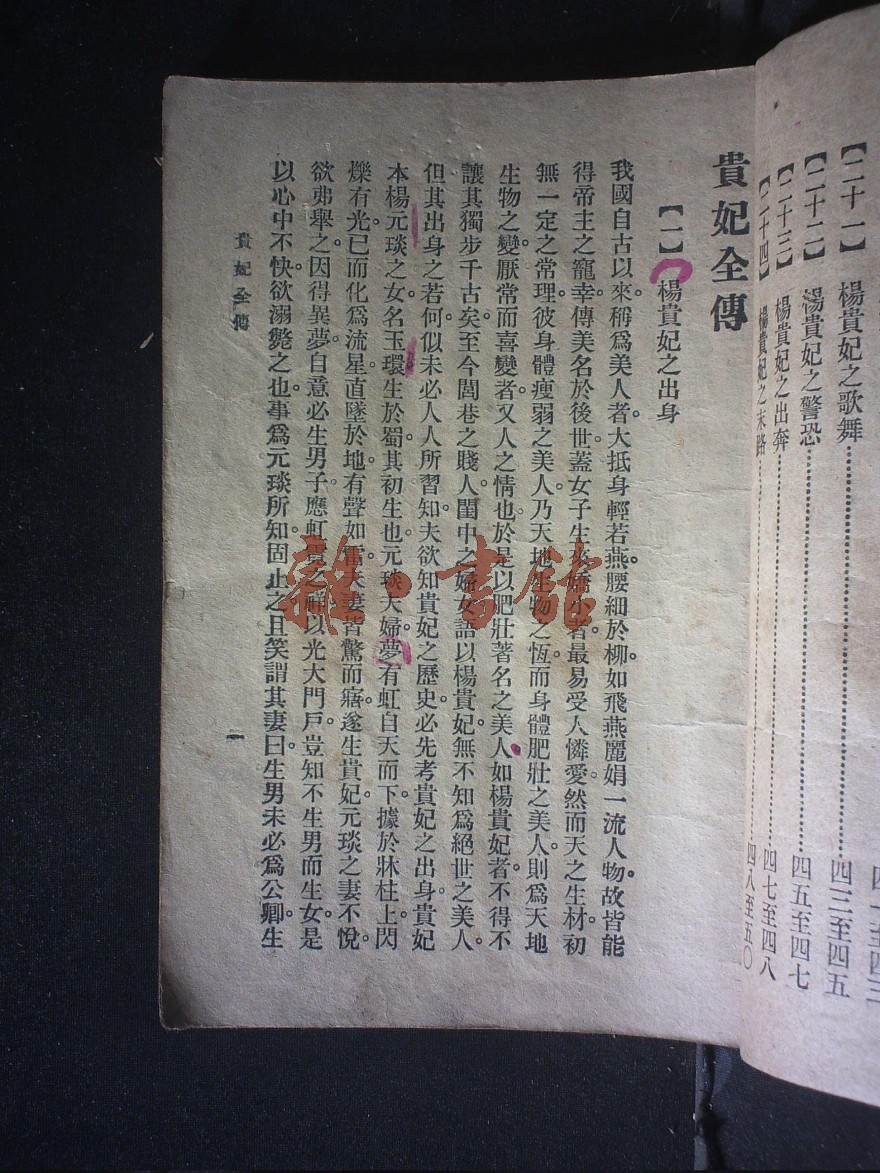 【二十一】 楊貴妃之歌舞……四三至四五
【二十二】 楊貴妃之警恐……四五至四七
【二十三】 楊貴妃之出奔……四七至四八
【二十四】 楊貴妃之末路……四八至五〇
貴妃全傳
【一】楊貴妃之出身
我國自古以來。稱爲美人者。大抵身輕若燕。腰細於柳。如飛燕麗娟一流人物。故皆能
得帝主之寵幸。傳美名於後世。蓋女子生來嬌小者。最易受人憐愛。然而天之生材。初
無一定之常理。彼身體瘦弱之美人。乃天地生物之恆。而身體肥壯之美人。則爲天地
生物之變。厭常而喜變者。又人之情也。於是以肥壯著名之美人。如楊貴妃者。不得不
讓其獨步千古矣。至今閭巷之賤人。閨中之婦女。語以楊貴妃。無不知爲絕世之美人。
但其出身之若何。似未必人人所習知。夫欲知貴妃之歷史。必先考貴妃之出身。貴妃
本楊元琰之女。名玉環。生於蜀。其初生也。元琰夫婦夢有虹自天而下。據於牀柱上。閃
爍有光。已而化爲流星。直墜於地。有聲如雷。夫妻皆驚而寤。遂生貴妃。元琰之妻不悅。
欲弗舉之。因得異夢。自意必生男子。應虹霓之祥。以光大門戶。豈知不生男而生女。是
以心中不快。欲溺斃之也。事爲元琰所知。固止之。且笑謂其妻曰。生男未必爲公卿。生
貴妃全傳
一
雜·書館